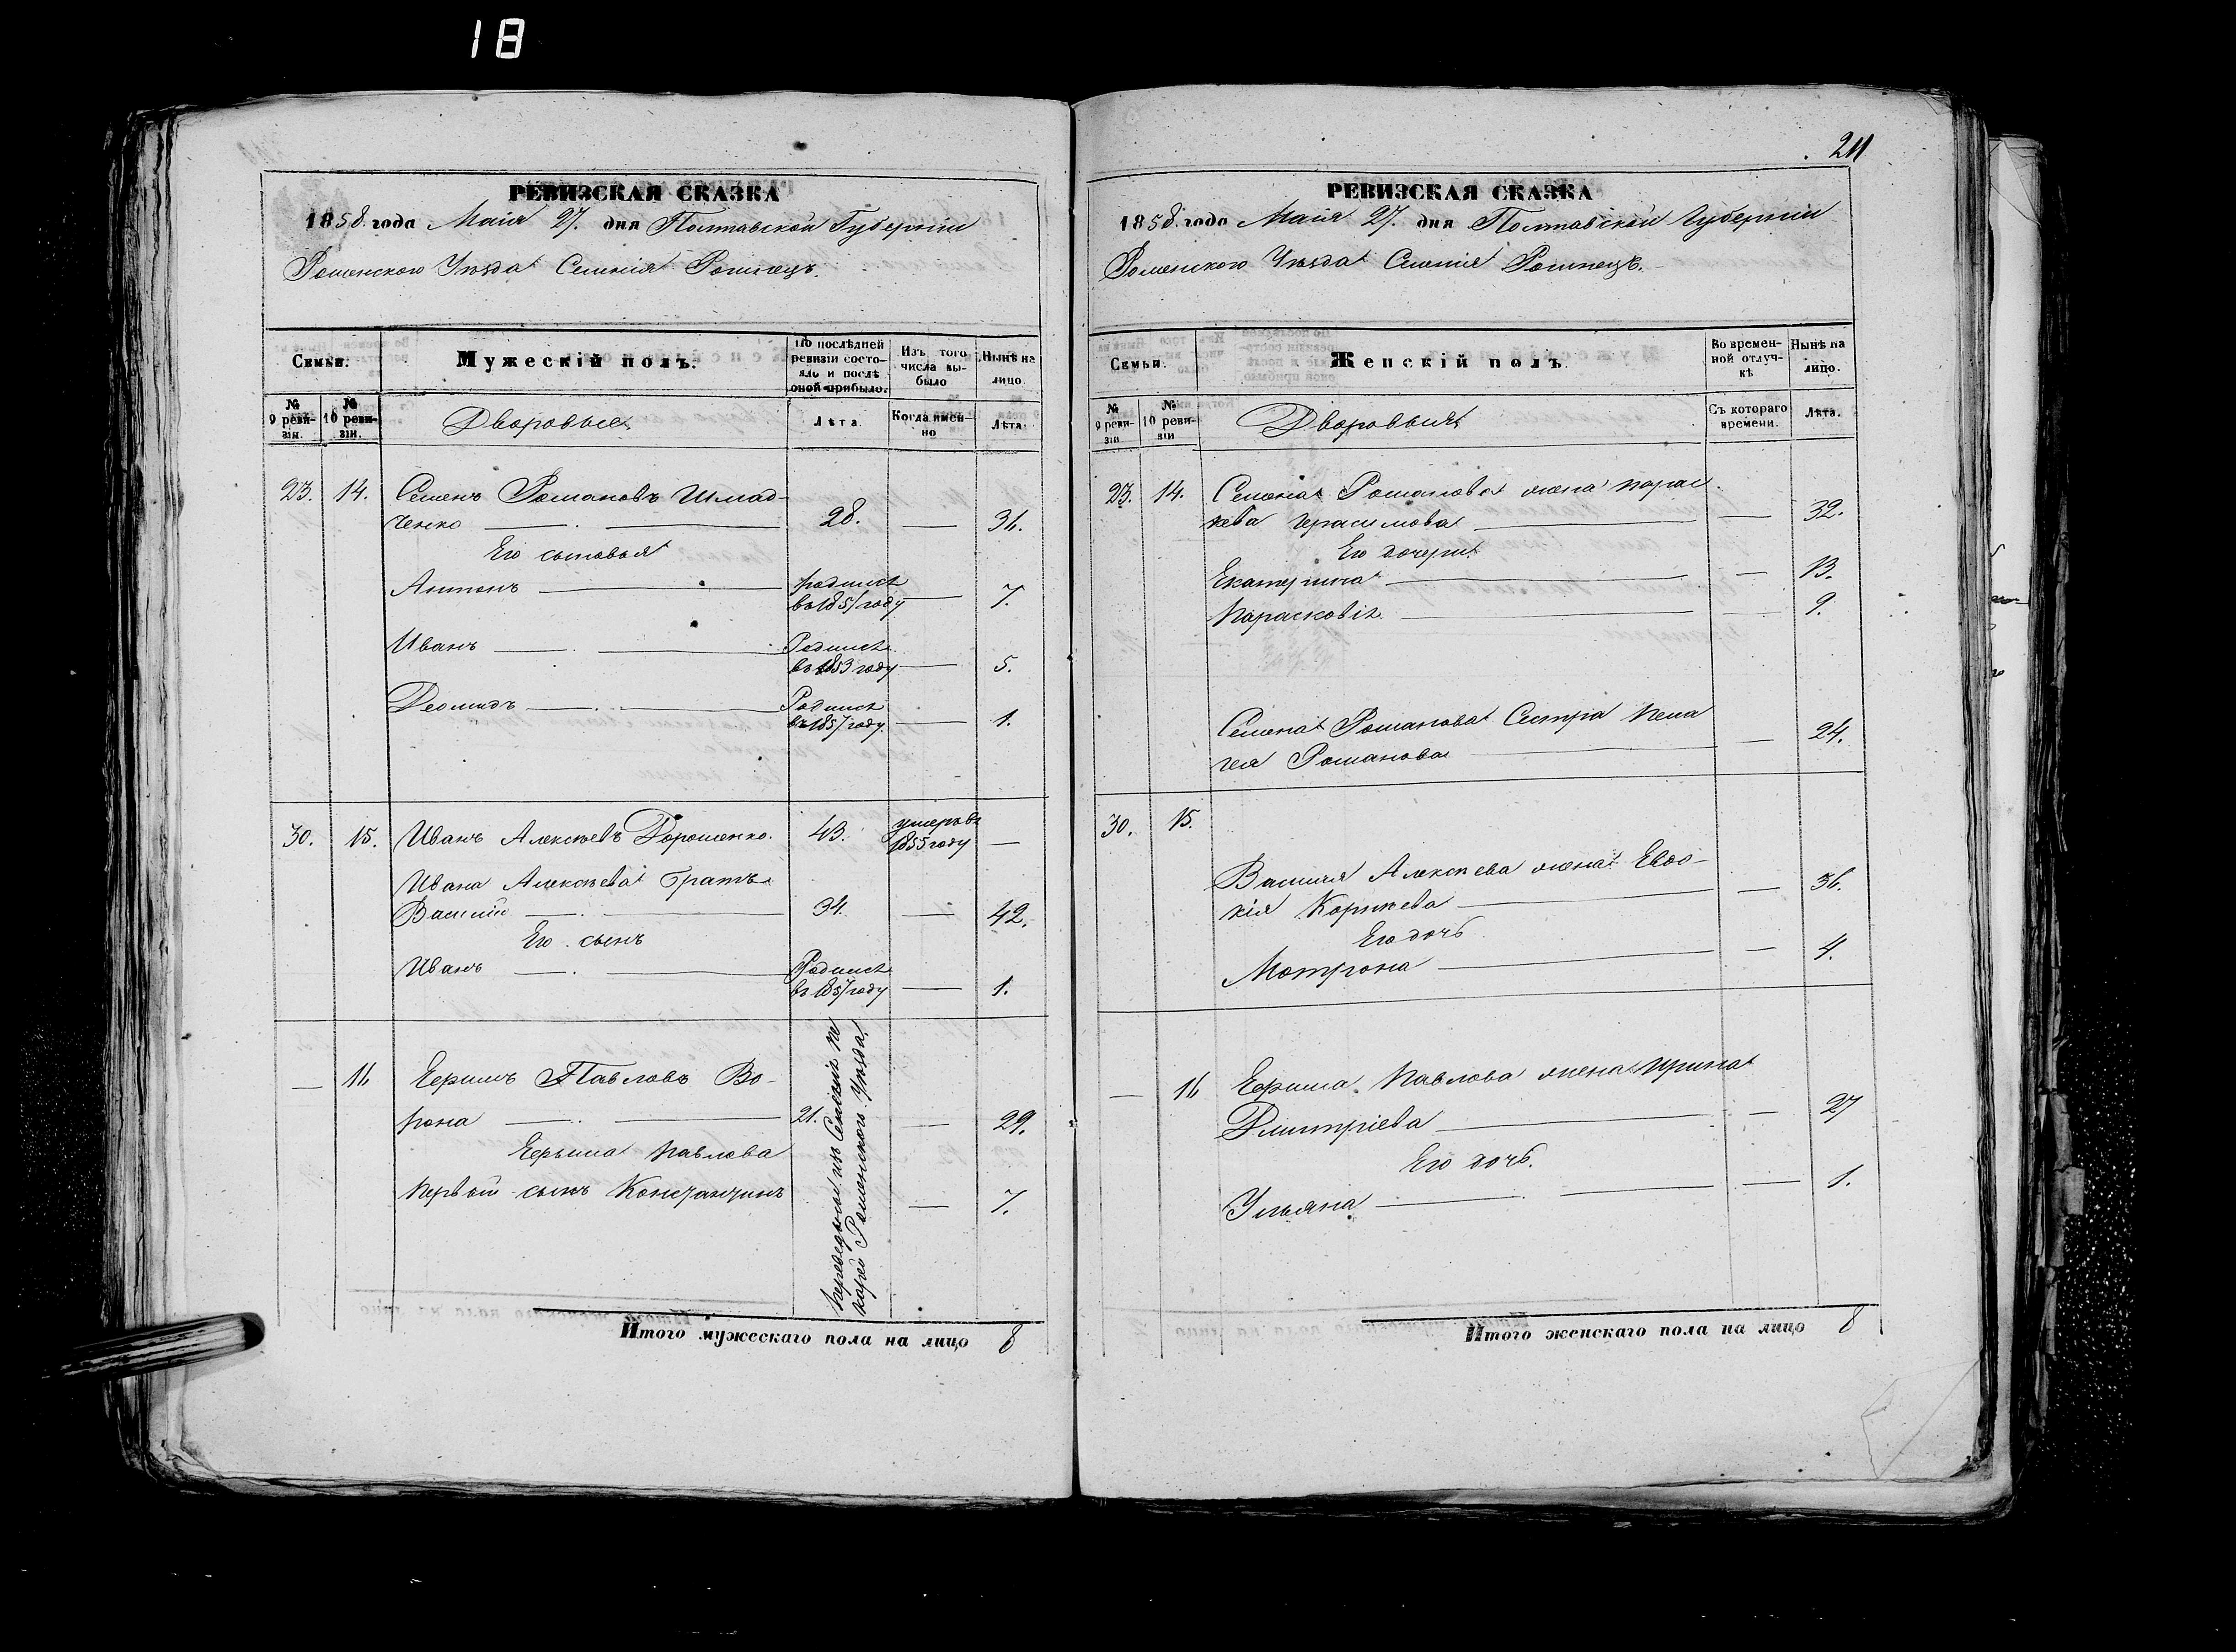 18
РЕВИЗСКАЯ СКАЗКА
1858 года Маія 27. дня Полтавской Губерніи
Роменского Уѣзда Селенія
Семьи.
Мужескій полъ.
По послѣдней ревизіи состояло и послѣ оной прибыло.
Изъ того числа выбыло
Нынѣ на лицо.
№ 9 ревизіи.
№ 10 ревизіи.
Дворовые
Лѣта.
Когда именно
Лѣта.
23. 14. Семенъ Романовъ Шмад-
ченко 28. — 36.
Его сыновья
Антонъ родился
въ 1851 году — 7.
Иванъ Родился
въ 1853 году — 5.
Деомидъ Родился
въ 1857 году. — 1.
30. 15. Иванъ Алексѣевъ Дорошенко. 43. умеръ въ
1855 году —
Ивана Алексѣева братъ
Василій 34. — 42.
Его сынъ
Иванъ Родился
въ 1857 году — 1.
— 16 Ефимъ Павловъ Во-
рона 21. — 29.
Ефима Павлова
первый сынъ Константинъ — 7.
Переведены изъ Селенія
Роменского Уѣзда
Итого мужескаго пола на лицо 8
211
РЕВИЗСКАЯ СКАЗКА
1858 года Маія 27. дня Полтавской Губерніи
Роменского Уѣзда Селенія
Семьи.
Женскій полъ.
Во временной отлучкѣ
Нынѣ на лицо.
№ 9 ревизіи
№ 10 ревизіи
Дворовыя
Съ котораго времени.
Лѣта.
23. 14. Семена Романова жена Парас-
кева Герасимова — 32.
Его дочери
Екатерина — 13.
Парасковія — 9.
Семена Романова Сестра Пела
гея Романова — 24.
30. 15.
Василія Алексѣева жена Евдо-
кія Корнѣева — 36.
Его дочь
Мотрона — 4.
— 16 Ефима Павлова жена Ирина
Дмитріева — 27
Его дочь.
Ульяна — 1.
Итого женскаго пола на лицо 8